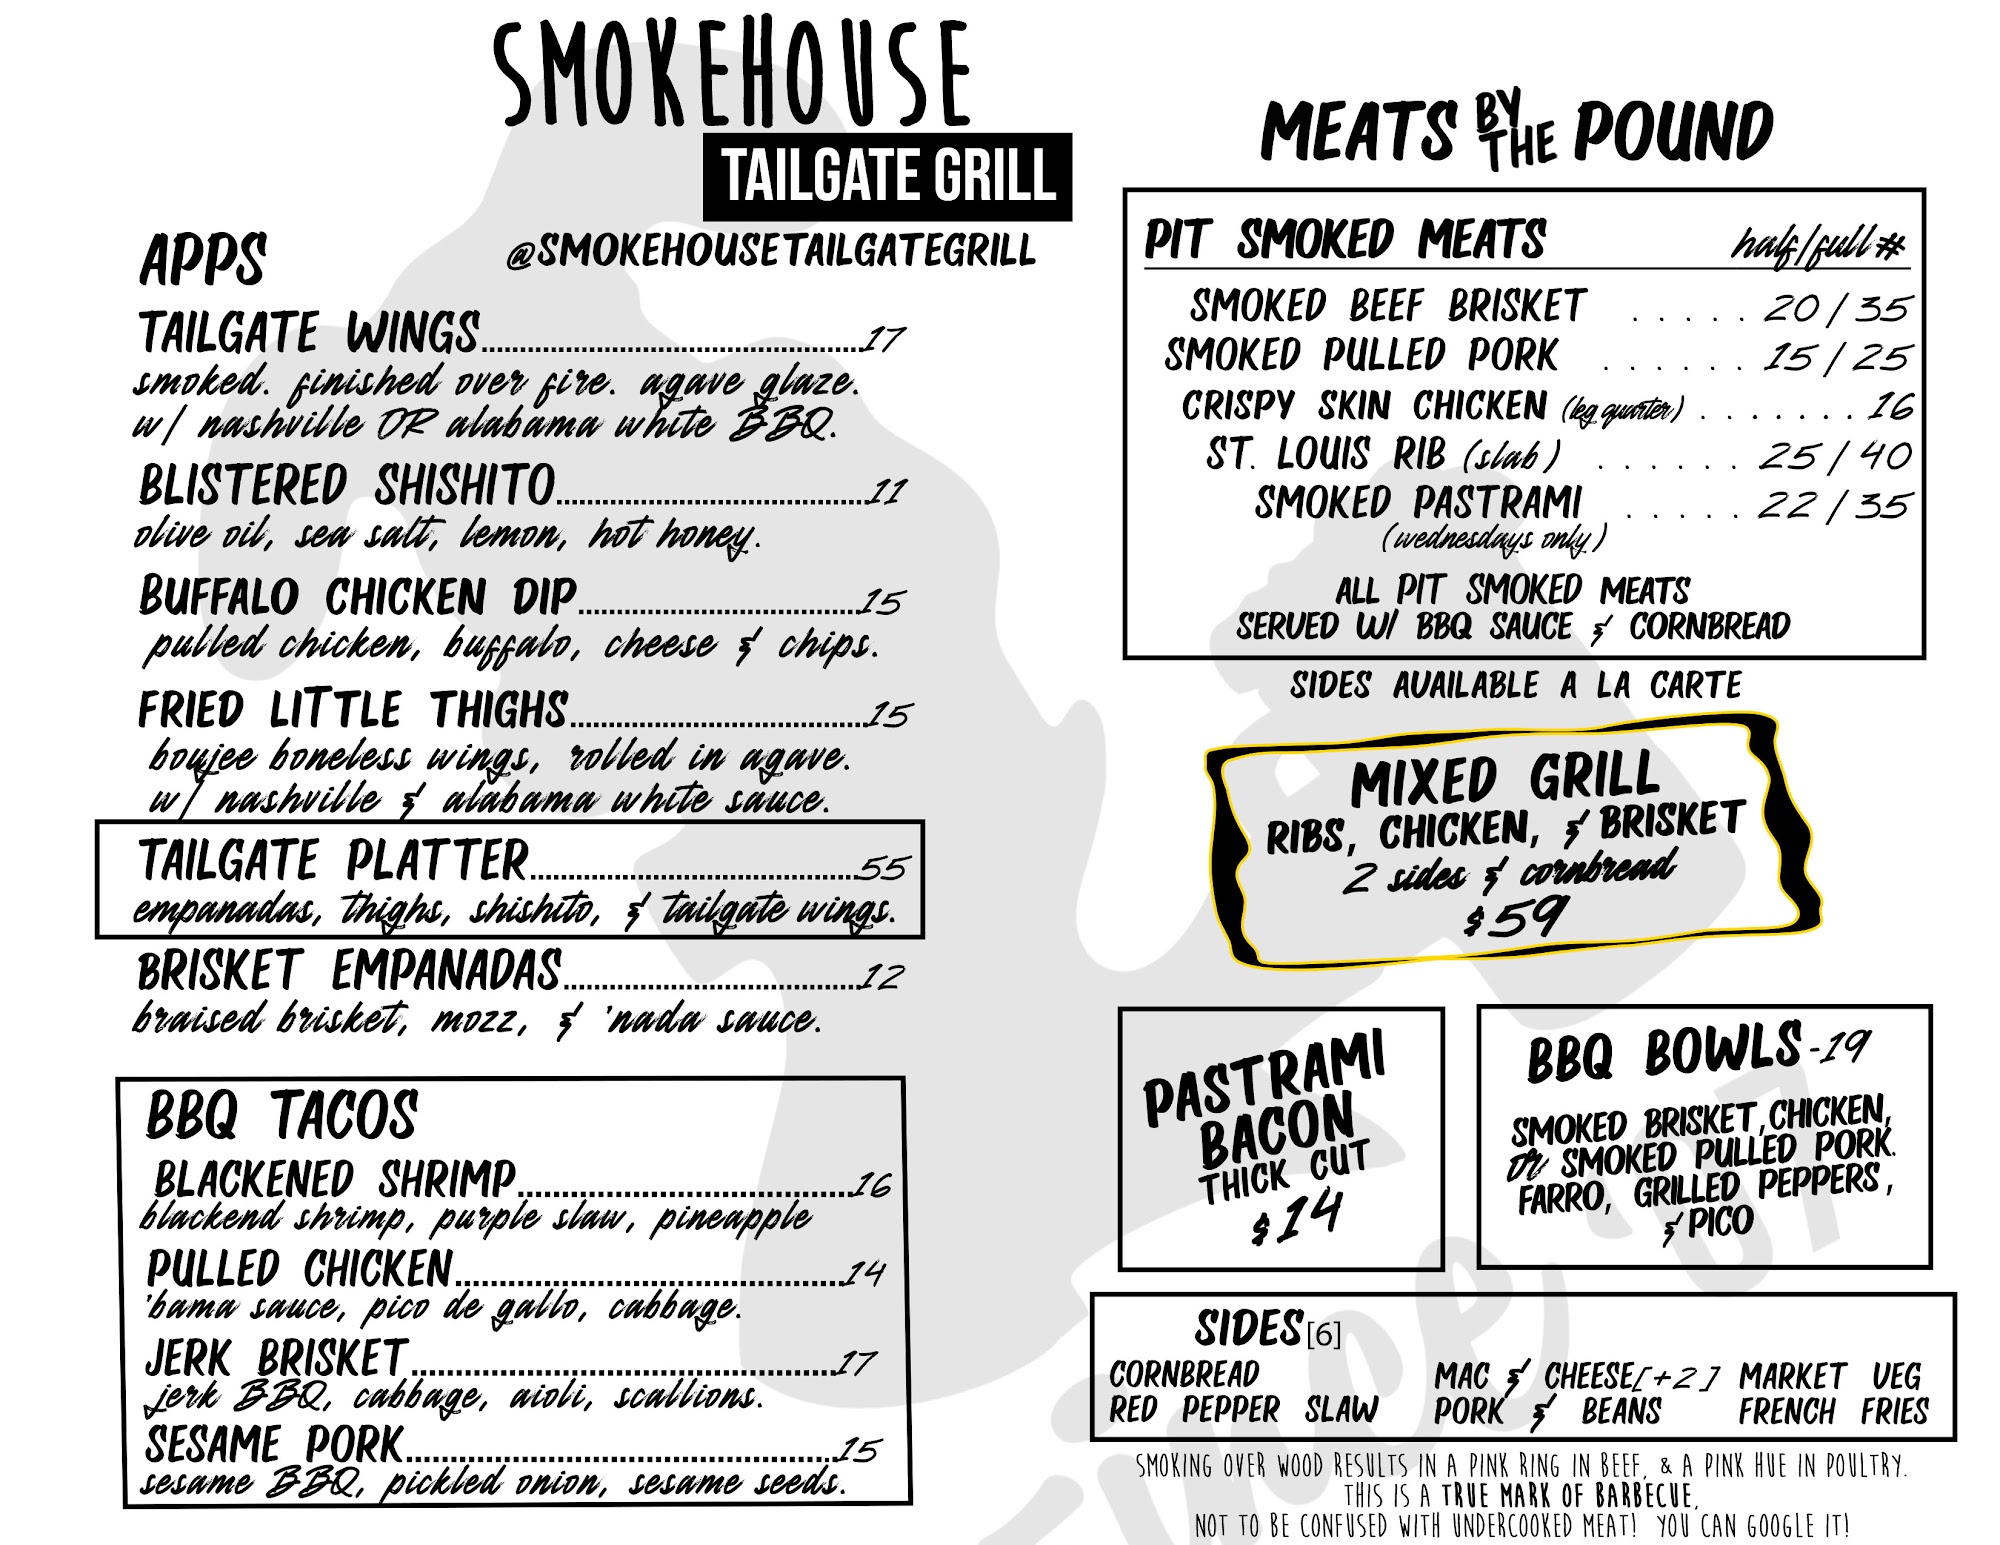 SMOKEHOUSE
TAILGATE GRILL
@SMOKEHOUSETAILGATEGRILL
APPS
TAILGATE WINGS 17
smoked. finished over fire. agave glaze.
w/ nashville OR alabama white BBQ.
BLISTERED SHISHITO 11
olive oil, sea salt, lemon, hot honey.
BUFFALO CHICKEN DIP 15
pulled chicken, buffalo, cheese & chips.
FRIED LITTLE THIGHS 15
boujee boneless wings, rolled in agave.
w/ nashville & alabama white sauce.
TAILGATE PLATTER 55
empanadas, thighs, shishito, & tailgate wings.
BRISKET EMPANADAS 12
braised brisket, mozz, & 'nada sauce.
BBQ TACOS
BLACKENED SHRIMP 16
blackend shrimp, purple slaw, pineapple
PULLED CHICKEN 14
'bama sauce, pico de gallo, cabbage.
JERK BRISKET 17
jerk BBQ, cabbage, aioli, scallions.
SESAME PORK 15
sesame BBQ, pickled onion, sesame seeds.
MEATS BY THE POUND
PIT SMOKED MEATS half/full #
SMOKED BEEF BRISKET . . . . . 20 / 35
SMOKED PULLED PORK . . . . . . 15 / 25
CRISPY SKIN CHICKEN (leg quarter) . . . . . . . 16
ST. LOUIS RIB (slab) . . . . . . 25 / 40
SMOKED PASTRAMI . . . . . 22 / 35
(wednesdays only)
ALL PIT SMOKED MEATS
SERVED W/ BBQ SAUCE & CORNBREAD
SIDES AVAILABLE A LA CARTE
MIXED GRILL
RIBS, CHICKEN, & BRISKET
2 sides & cornbread
$59
PASTRAMI
BACON
THICK CUT
$14
BBQ BOWLS -19
SMOKED BRISKET, CHICKEN,
or SMOKED PULLED PORK.
FARRO, GRILLED PEPPERS,
& PICO
SIDES [6]
CORNBREAD MAC & CHEESE [+2] MARKET VEG
RED PEPPER SLAW PORK & BEANS FRENCH FRIES
SMOKING OVER WOOD RESULTS IN A PINK RING IN BEEF, & A PINK HUE IN POULTRY.
THIS IS A TRUE MARK OF BARBECUE,
NOT TO BE CONFUSED WITH UNDERCOOKED MEAT! YOU CAN GOOGLE IT!